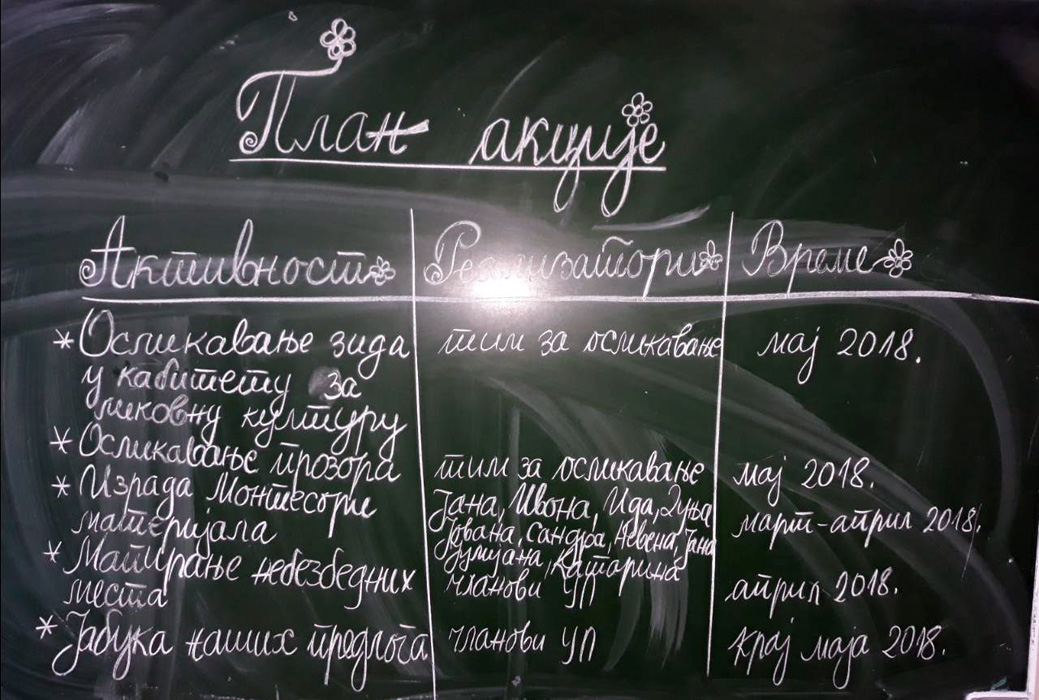 План акције
Активност Реализатори Време
* Осликавање зида тим за осликавање мај 2018.
у кабинету за
ликовну културу
* Осликавање прозора тим за осликавање мај 2018.
* Израда Монтесори Јана, Ивона, Ида, Дуња
материјала Јована, Сандра, Невена, Јана март-април 2018.
Јулијана, Катарина
* Мапирање небезбедних чланови УП април 2018.
места
* Јабука наших предлога чланови УП крај маја 2018.